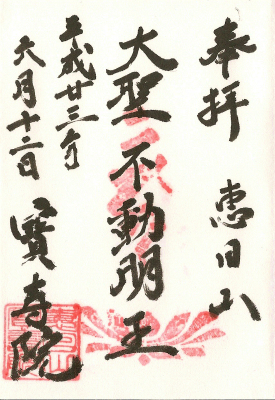 奉拝
恵日山
大聖不動明王
平成廿三年
六月十二日
寳寿院